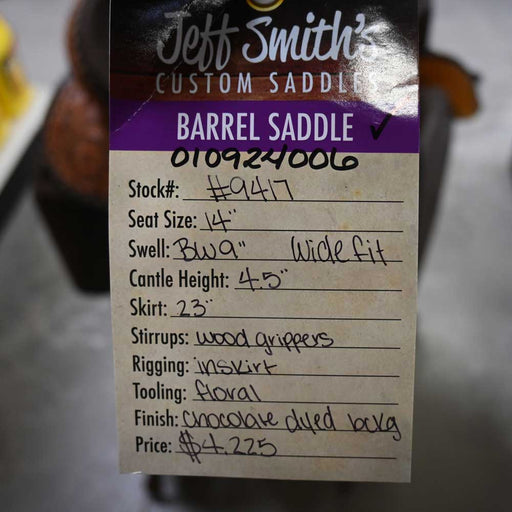 Jeff Smith's
CUSTOM SADDLES
BARREL SADDLE ✓
010924006
Stock#: #9417
Seat Size: 14"
Swell: BW9" Wide fit
Cantle Height: 4.5"
Skirt: 23"
Stirrups: wood grippers
Rigging: inskirt
Tooling: floral
Finish: chocolate dyed bckg
Price: $4,225